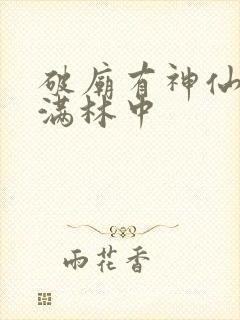 破廟有神仙
满林中
雨花香